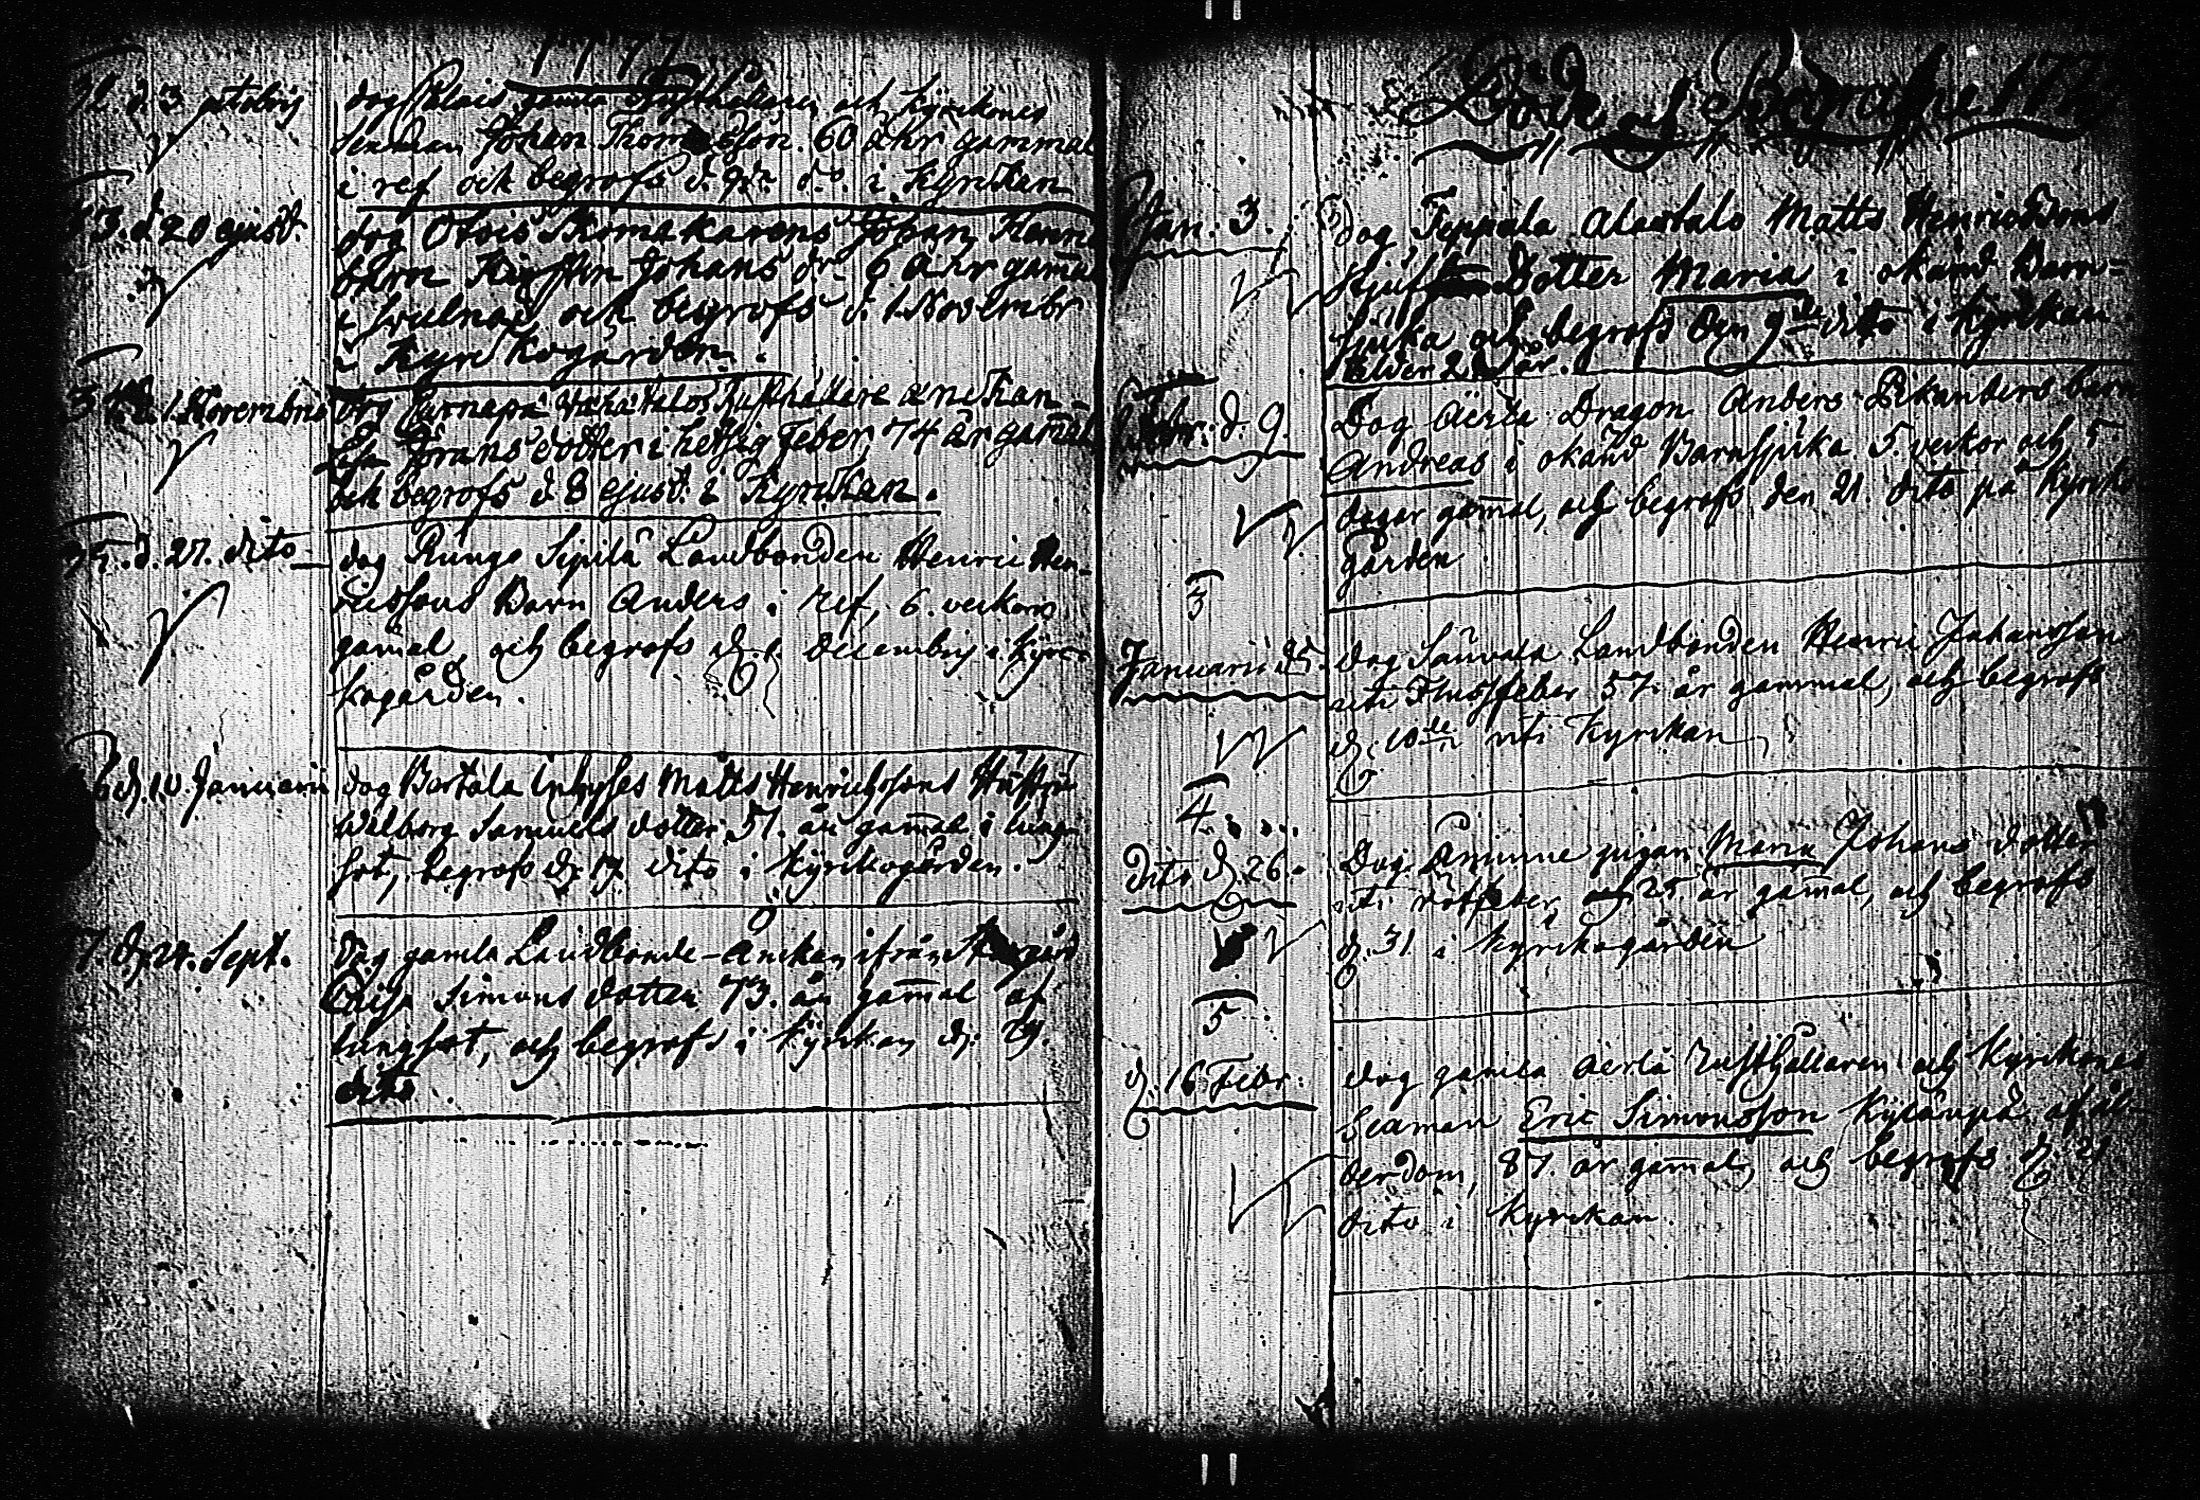 1777
d. 3 octobris
dog Palais gamla Rusthållaren och Kyrckones
Sexman Johan Thomasson. 60 åhr gammal
i ref och begrofs d. 9de do. i Kyrckan
13. d 20 ejusd.
dog Otois Skomakarens Johan Henric
barn Kirstin Johans dr. 6 åhr gamal
i svulnad och begrofs d. 1 Novembr
i Kyrckogården.
d. 1. Novembris
dog Husthållare änckan
Lisa Jörans dotter i hetsig Feber 74 år gamal
och begrofs d. 8 ejusd. i Kyrckan.
15. d. 27. dito
dog Rungo Sipilä Landbonden Henric Hen-
ricssons Barn Anders i ref, 6. veckors
gamal och begrofs d. decembris i Kyrc-
kogården.
6 d. 10. Januarii
dog Bertala Inhyses Matts Henrichssons Hustru
Walborg Samuels dotter 57. år gamal i lung-
sot, begrofs d. 17 dito i Kyrckogården.
7. d. 24. Sept.
dog gamla Landbonde-Änckan ifrån
Lisa Simons dotter 73. år gamal af
lungsot, och begrofs i Kyrckan d. 29.
dito
Döde och Begrafne
Jan. 3.
dog Teppala Alastalo Matts Henricssons
Dotter Maria i okänd Barn-
sjuka och begrofs den 9de dito i Kyrckan
ålder 2 år.
Febr. d. 9.
Dog Äerlä Dragon Anders Pikanders barn
Andreas i okänd Barnsjuka 5. veckor och 5
dagar gamal, och begrofs den 21. dito på Kyrcko
gården
3
Januarii d 5.
dog Sauvala Landbonden Henric Johansson
uti Flussfeber 57. år gammal, och begrofs
d. 10de uti Kyrckan
4.
Dito d. 26.
Dog Aminne pigan Maria Johans dotter
uti rötfeber, 25. år gamal, och begrofs
d. 31 i Kyrckogården
5
d. 16 Febr.
dog gamla Äerlä Rusthållaren och Kyrckones
Sexman Eric Simonsson Kylänpä af ål-
derdom, 87. år gamal, och begrofs d. 21
dito i Kyrckan.